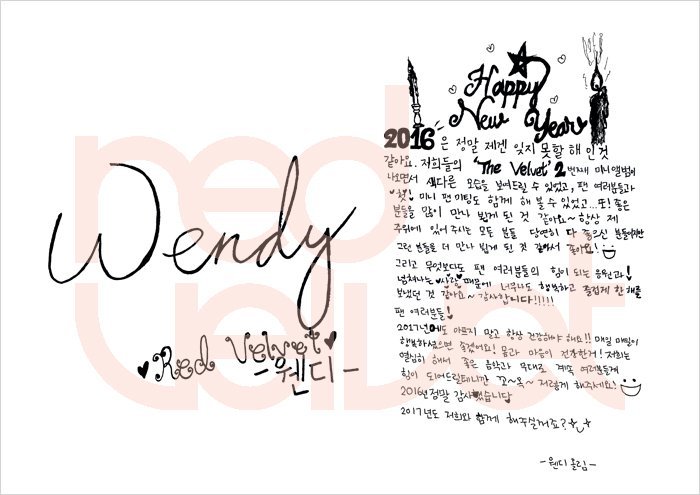 red
velvet
Wendy
Red Velvet
-웬디-
Happy
New Year
2016은 정말 제겐 잊지 못할 해인 것
같아요. 저희들의 'The Velvet' 2번째 미니앨범이
나오면서 색다른 모습을 보여드릴 수 있었고, 팬 여러분들과
첫! 미니 팬미팅도 함께 해 볼 수 있었고...또! 좋은
분들을 많이 만나 뵙게 된 것 같아요~ 항상 제
주위에 있어주시는 모든 분들 당연히 다 좋으신 분들이지만
그런 분들을 더 만나 뵙게 된 것 같아서 좋아요!
그리고 무엇보다도 팬 여러분들의 힘이 되는 응원과
넘쳐나는 사랑 때문에 너무나도 행복하고 즐겁게 한 해를
보냈던 것 같아요~ 감사합니다!!!!!
팬 여러분들!
2017년에도 아프지 말고 항상 건강해야 해요!! 매일 매일이
행복하셨으면 좋겠어요! 몸과 마음이 건강한게! 저희는
열심히 해서 좋은 음악과 무대로 계속 여러분들께
힘이 되어드릴테니깐 꼬~옥~ 저렇게 해주세요!
2016년 정말 감사했습니다
2017년도 저희와 함께 해주실거죠?
-웬디 올림-